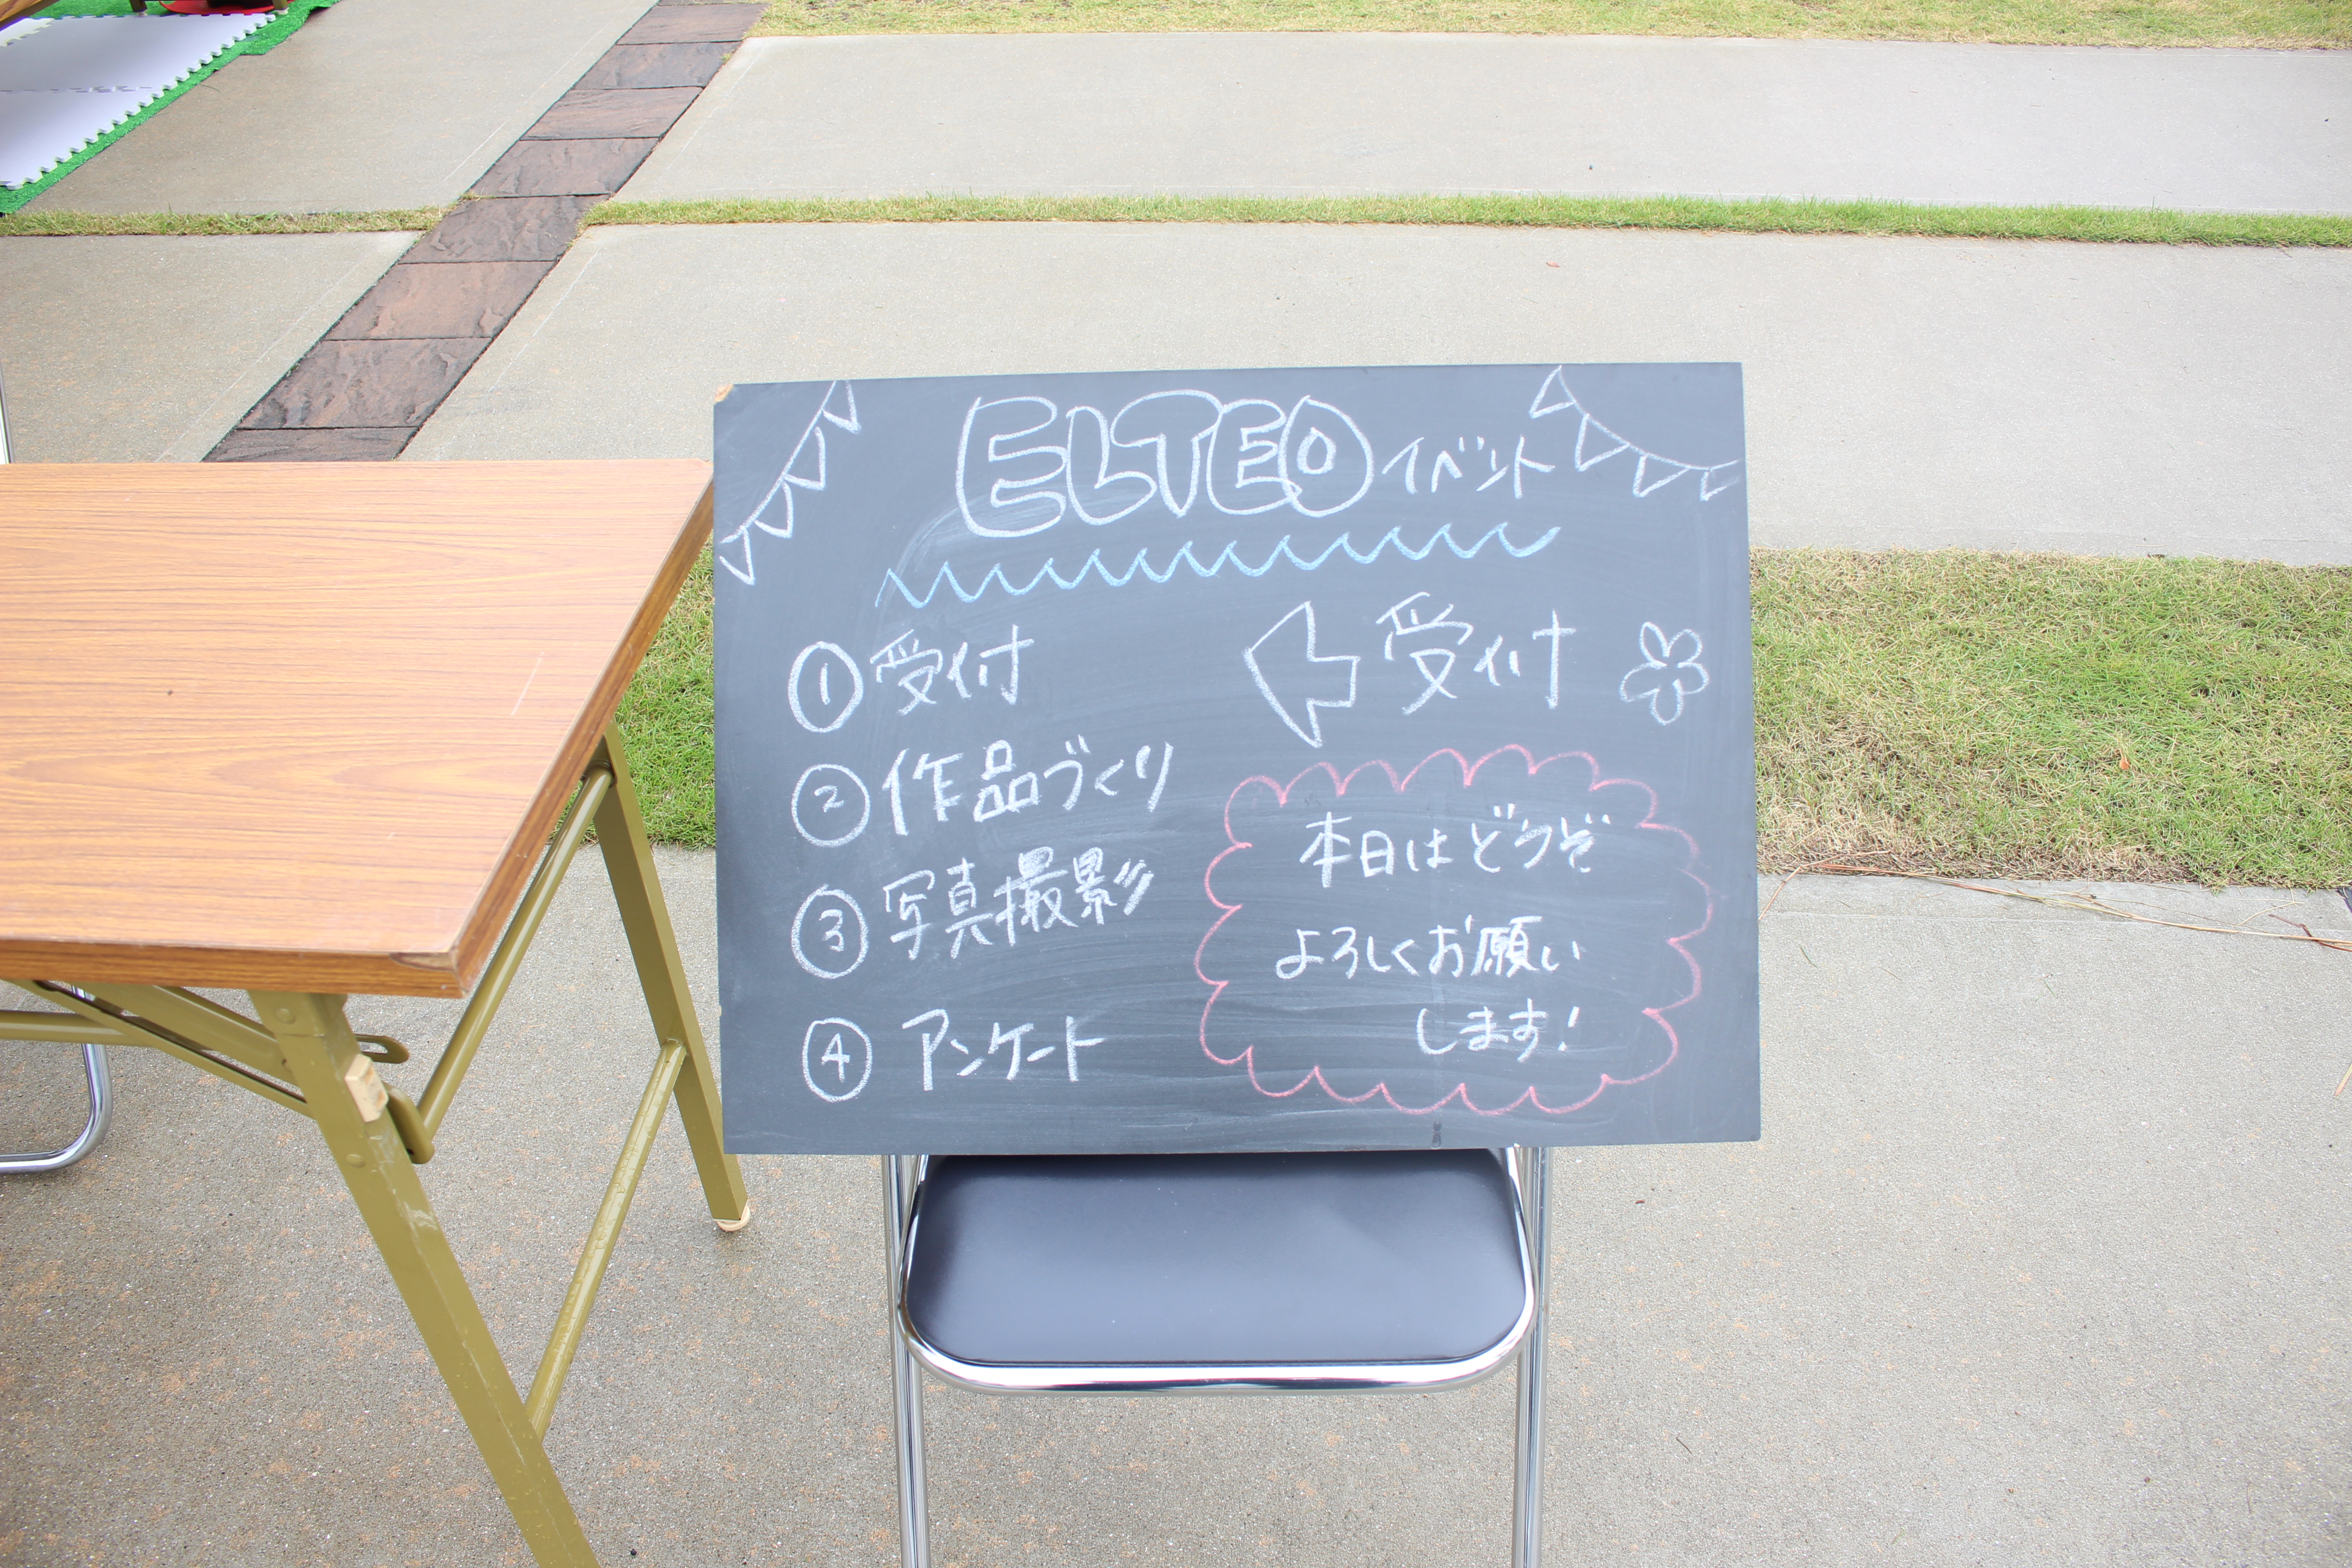 ELTEOイベント
①受付
②作品づくり
③写真撮影
④アンケート
受付
本日はどうぞ
よろしくお願い
します!